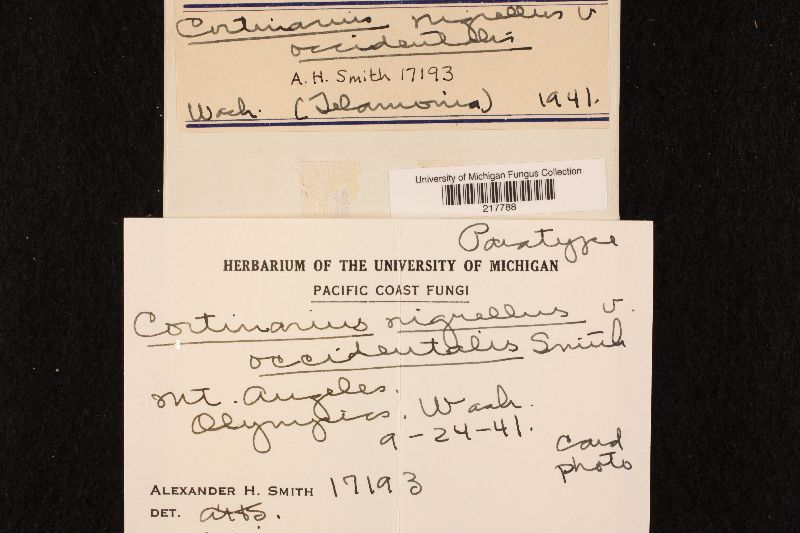 Cortinarius nigrellus v
occidentalis
A. H. Smith 17193
Wash. (Telamonia) 1941.
University of Michigan Fungus Collection
217788
Paratype
HERBARIUM OF THE UNIVERSITY OF MICHIGAN
PACIFIC COAST FUNGI
Cortinarius nigrellus v.
occidentalis Smith
Mt. Angeles.
Olympics. Wash.
9-24-41.
Card
photo
ALEXANDER H. SMITH 17193
DET. AHS.